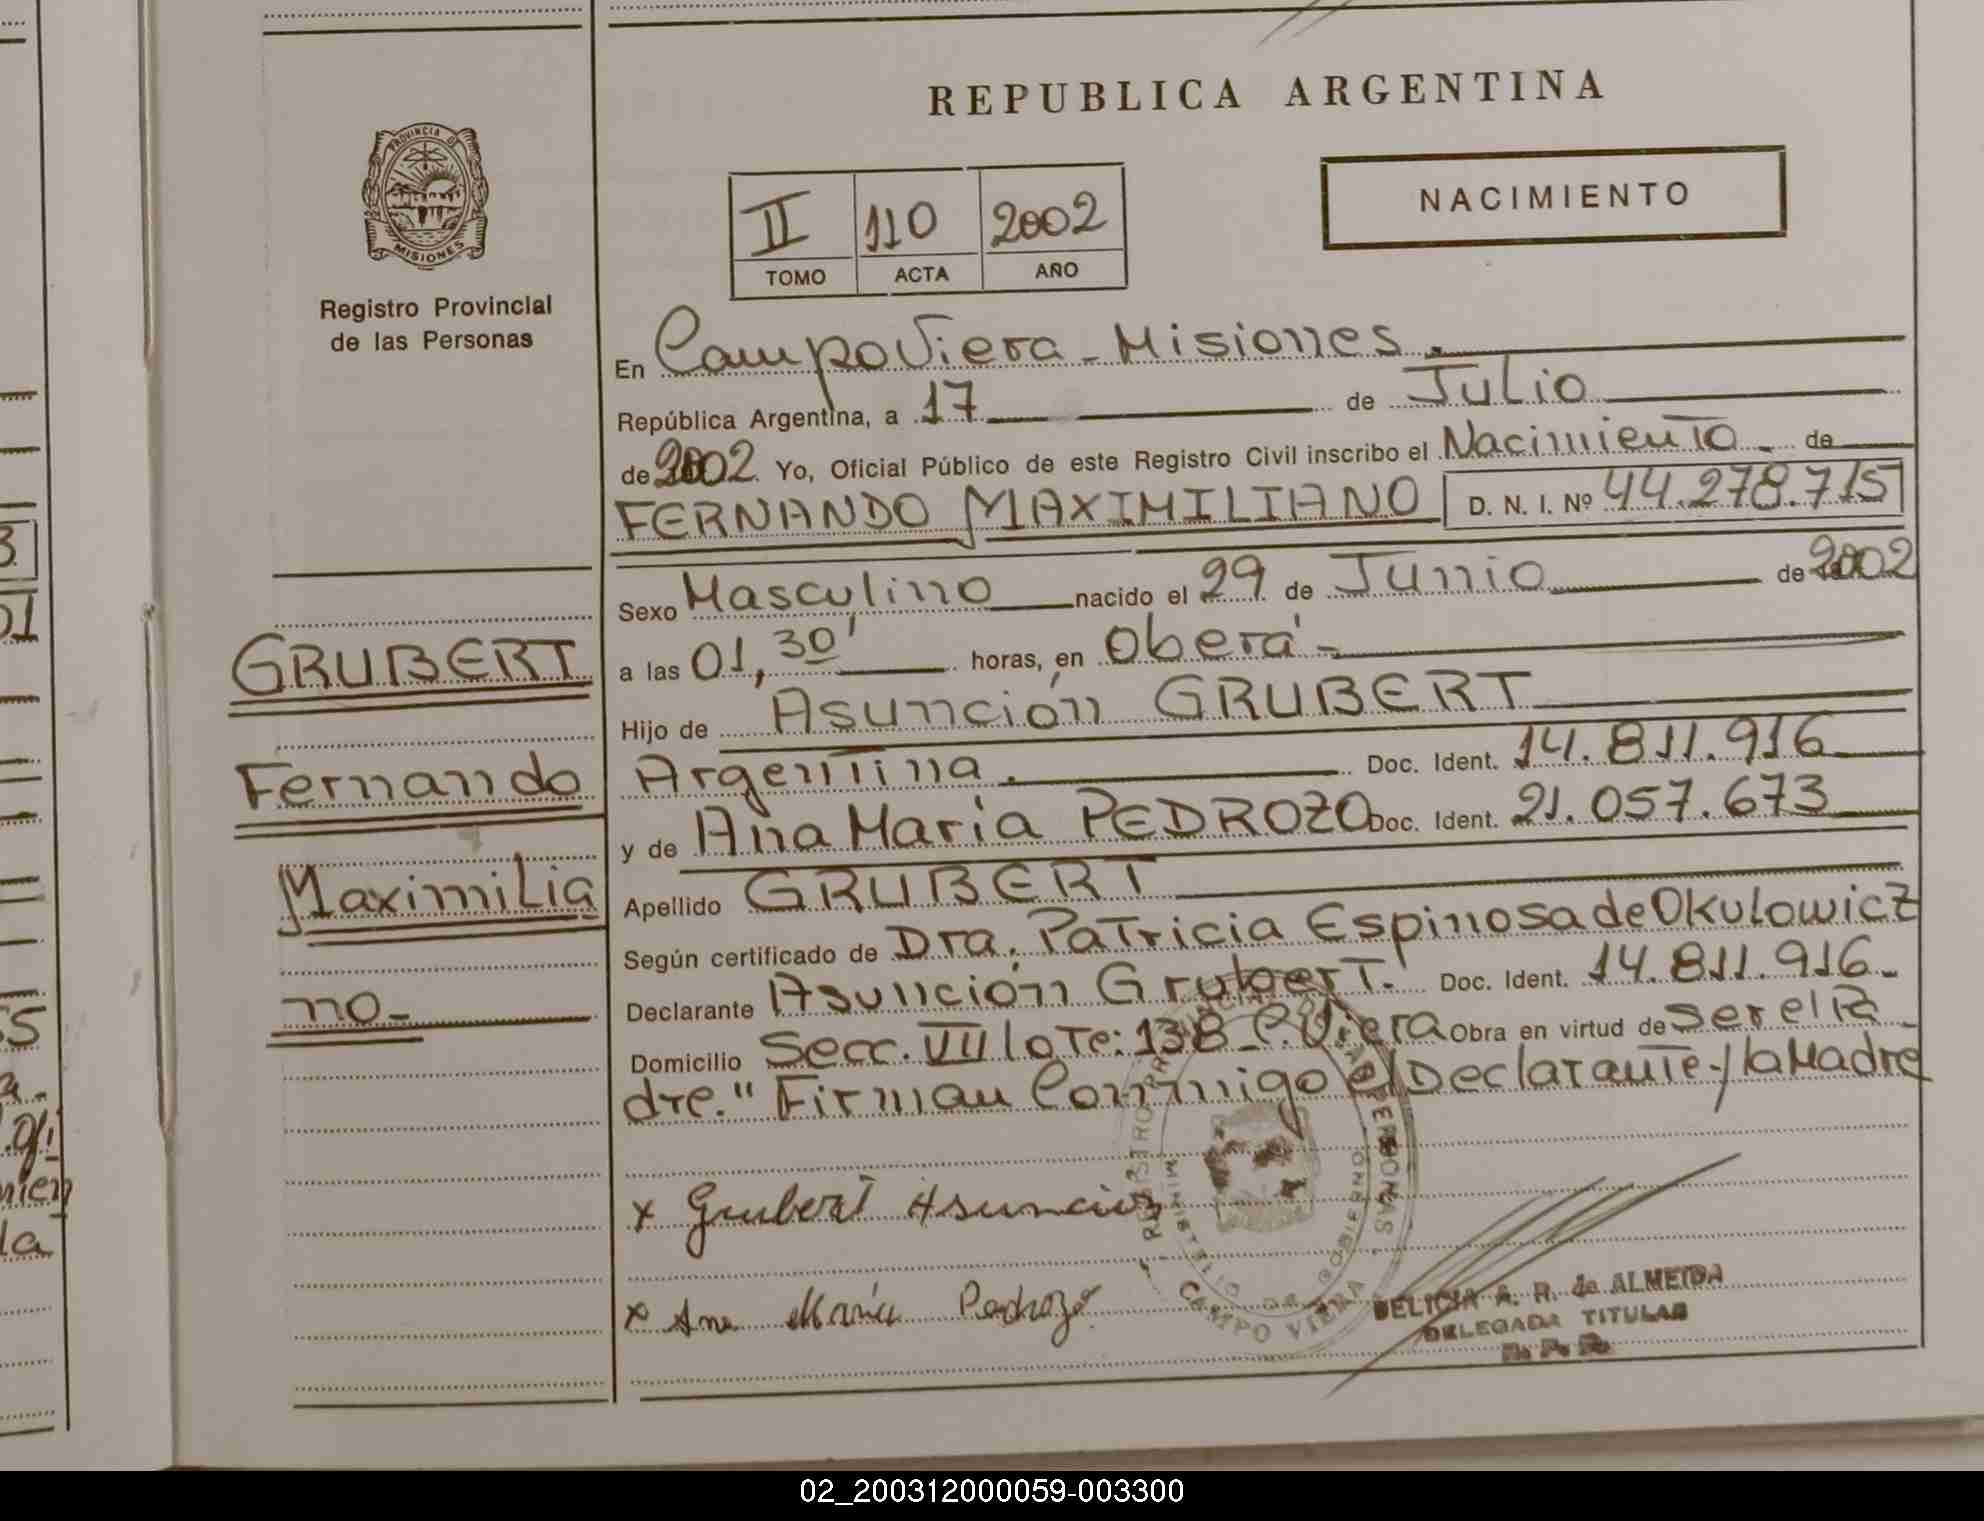 REPUBLICA ARGENTINA
PROVINCIA DE
MISIONES
Registro Provincial
de las Personas
NACIMIENTO
II 110 2002
TOMO ACTA AÑO
En Campo Viera - Misiones.
República Argentina, a 17 de Julio
de 2002. Yo, Oficial Público de este Registro Civil inscribo el Nacimiento de
FERNANDO MAXIMILIANO D. N. I. Nº 44.278.715
Sexo Masculino nacido el 29 de Junio de 2002
a las 01,30' horas, en Oberá -
Hijo de Asunción GRUBERT
Argentina. Doc. Ident. 14.811.916
y de Ana María PEDROZO Doc. Ident. 21.057.673
Apellido GRUBERT
Según certificado de Dra. Patricia Espinosa de Okulowicz
Declarante Asunción Grubert. Doc. Ident. 14.811.916-
Domicilio Secc. VII lote: 138 C. Viera Obra en virtud de ser el Pa
dre." Firman Conmigo el Declarante y la Madre
GRUBERT
Fernando
Maximilia
no-
x Grubert Asuncion
x Ana María Pedrozo
CAMPO VIERA
DELICIA A. R. de ALMEIDA
DELEGADA TITULAR
R. P. P.
02_200312000059-003300